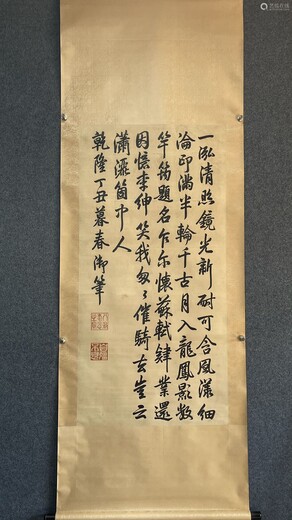 一泓清照鏡光新酎可含風漾細
淪印滿半輪千古月入龍鳳影數
竿筠題名乍尔懷蘇軾肄業還
因憶李紳笑我匆々催騎去豈云
瀟灑箇中人
乾隆丁丑暮春御筆